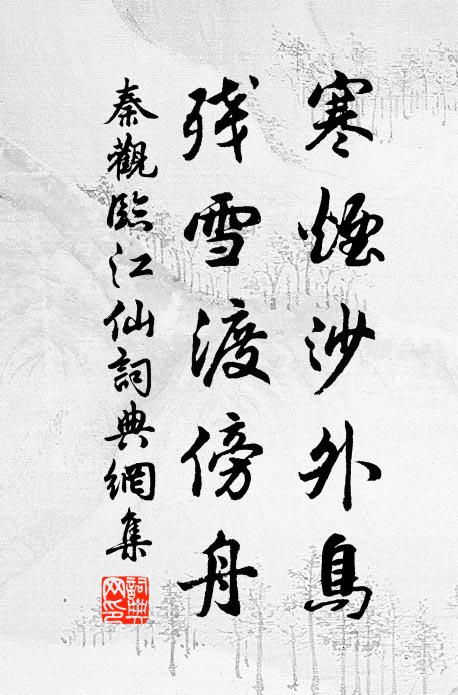 寒煙沙外鳥
残雪渡傍舟
秦觀臨江仙詞典網集
詞典网印